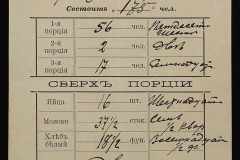 Состоитъ 175 чел.
1-я порція 56 чел. Пятьдесятъ шесть
2-я порція 2 чел. Двѣ
3-я порція 17 чел. Семнадцать
СВЕРХЪ ПОРЦІИ
Яйца 16 шт. Шестнадцать
Молоко 37½ шт.
Хлѣбъ бѣлый 18½ фн.